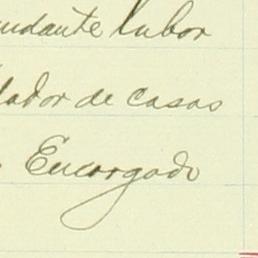 labor
lador de casas
Encargado